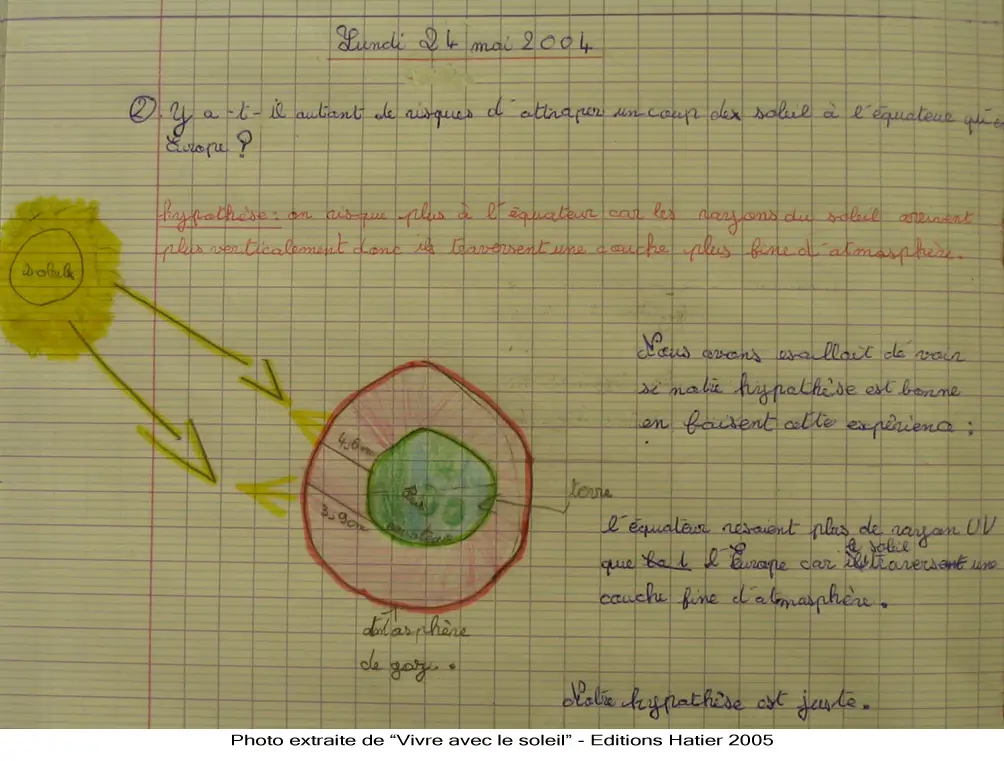 Lundi 24 mai 2004
② Y a-t-il autant de risques d'attraper un coup des soleil à l'équateur qu'e
Europe ?
hypothèse : on risque plus à l'équateur car les rayons du soleil arrivent
plus verticalement donc ils traversent une couche plus fine d'atmosphère.
soleil
Nous avons essallait de voir
si notre hypothèse est bonne
en faisent cette expérience :
4,6cm
3,9cm
équateur
terre
l'équateur resoient plus de rayon UV
que l'Europe car le soleil traversent une
couche fine d'atmosphère.
de gaz.
Notre hypothèse est juste.
Photo extraite de "Vivre avec le soleil" - Editions Hatier 2005